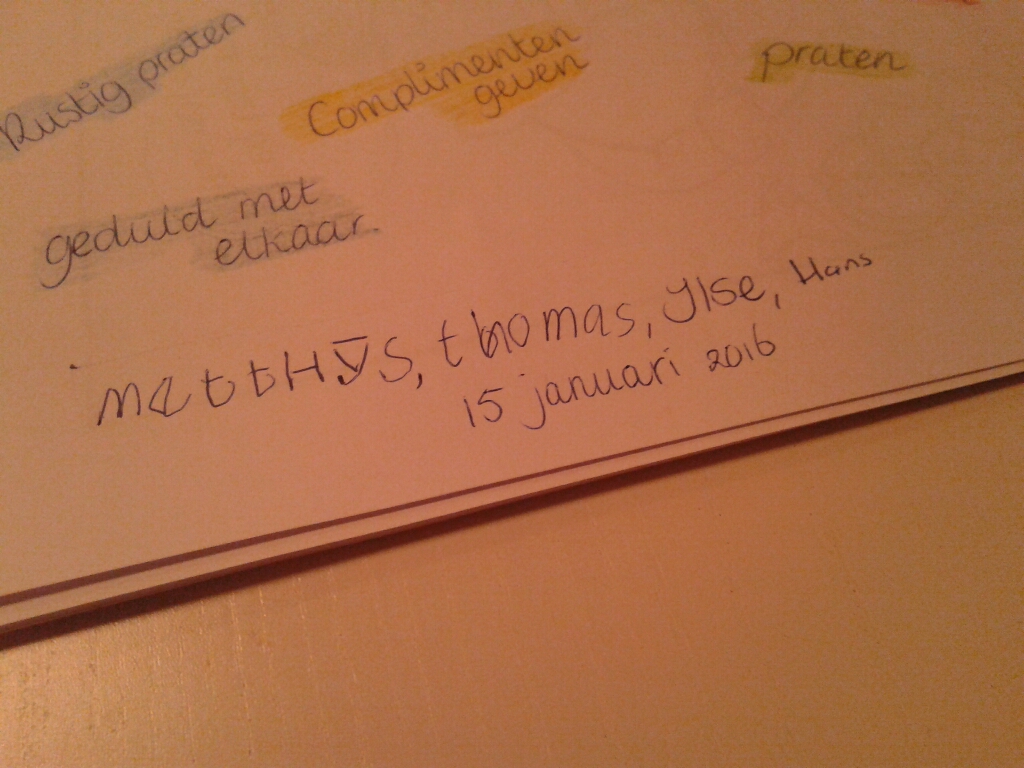 Rustig praten
Complimenten
geven
praten
geduld met
elkaar.
mattHYS, thomas, Ylse, Hans
15 januari 2016